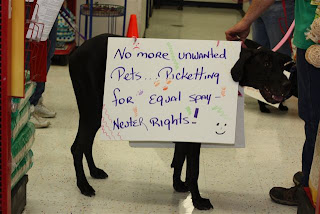 No more unwanted
Pets... Picketting
for Equal spay-
Neuter Rights!